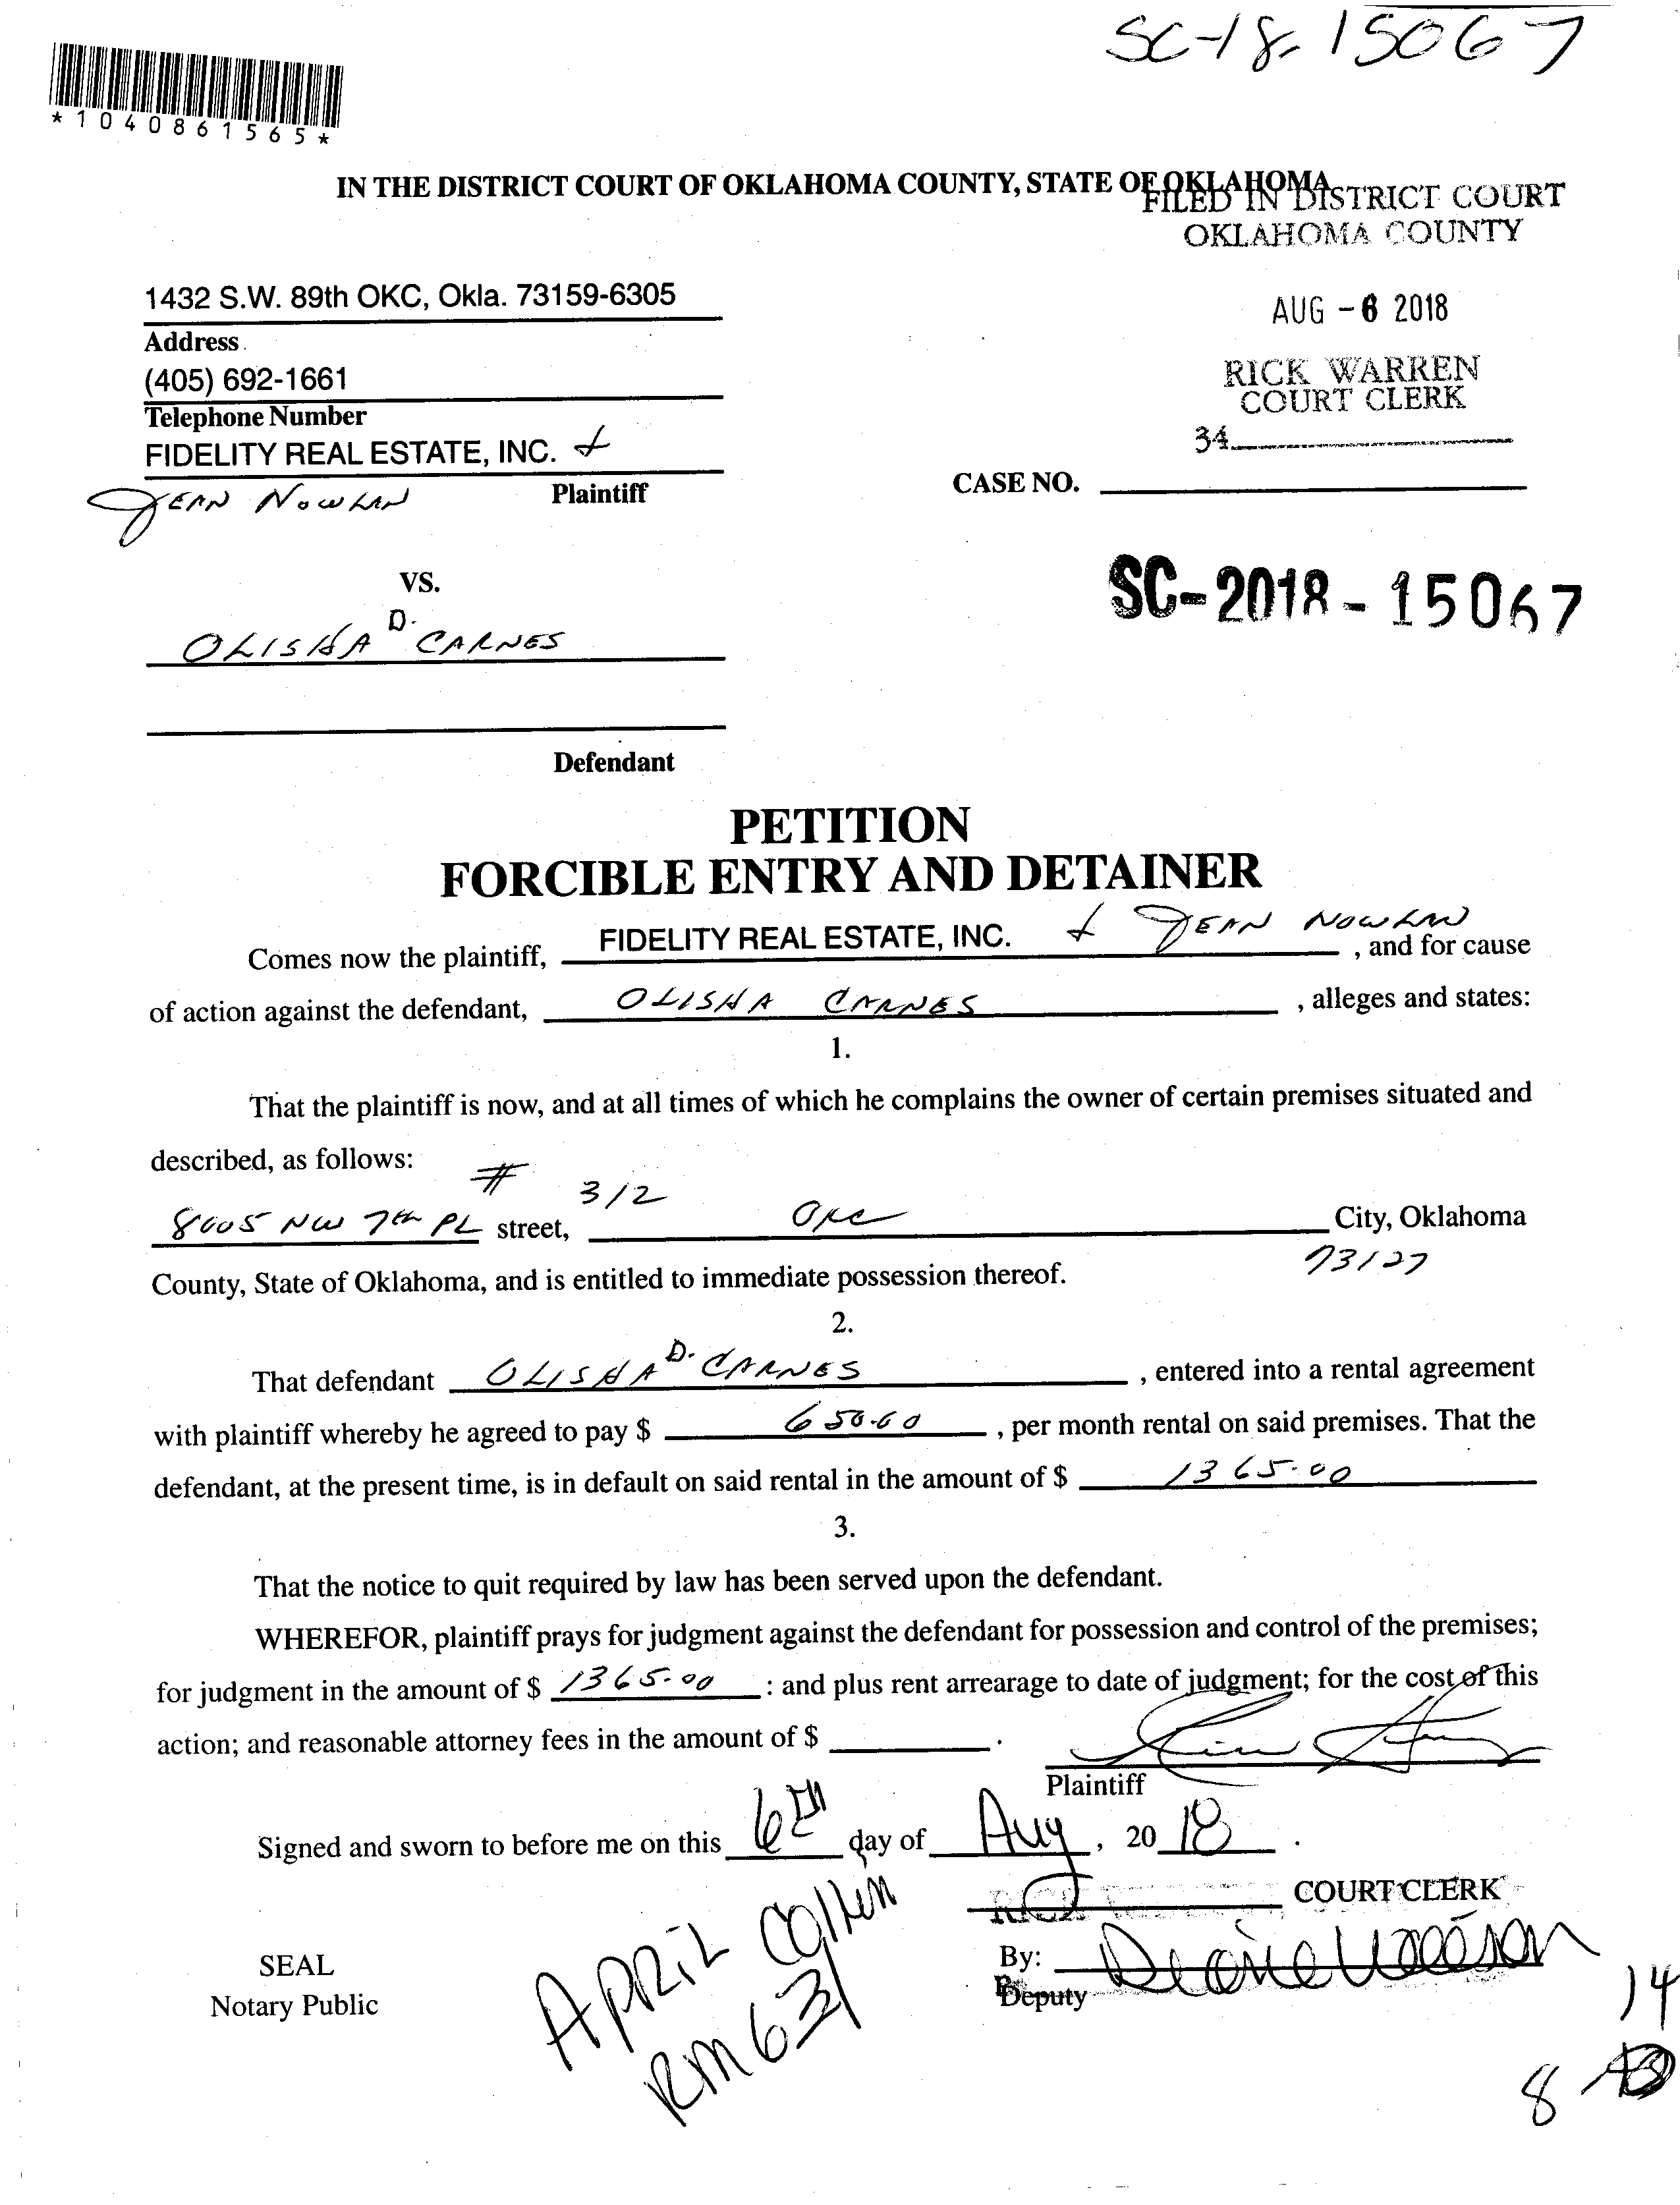 SC-18-15067
*1040861565*
IN THE DISTRICT COURT OF OKLAHOMA COUNTY, STATE OF OKLAHOMA
FILED IN DISTRICT COURT
OKLAHOMA COUNTY
1432 S.W. 89th OKC, Okla. 73159-6305
AUG -6 2018
Address
(405) 692-1661
RICK WARREN
COURT CLERK
Telephone Number
34
FIDELITY REAL ESTATE, INC. &
CASE NO.
JEAN NOWLAN Plaintiff
VS.
SC-2018-15067
OLISHA D. CARNES
Defendant
PETITION
FORCIBLE ENTRY AND DETAINER
Comes now the plaintiff, FIDELITY REAL ESTATE, INC. & JEAN NOWLAN, and for cause
of action against the defendant, OLISHA CARNES, alleges and states:
1.
That the plaintiff is now, and at all times of which he complains the owner of certain premises situated and
described, as follows:
# 312
8005 NW 7th PL street, OKC City, Oklahoma
73127
County, State of Oklahoma, and is entitled to immediate possession thereof.
2.
That defendant OLISHA D. CARNES, entered into a rental agreement
with plaintiff whereby he agreed to pay $ 650.00, per month rental on said premises. That the
defendant, at the present time, is in default on said rental in the amount of $ 1365.00
3.
That the notice to quit required by law has been served upon the defendant.
WHEREFOR, plaintiff prays for judgment against the defendant for possession and control of the premises;
for judgment in the amount of $ 1365.00 : and plus rent arrearage to date of judgment; for the cost of this
action; and reasonable attorney fees in the amount of $ .
Plaintiff
Signed and sworn to before me on this 6th day of Aug, 2018.
COURT CLERK
SEAL
By:
Notary Public
Deputy
APRIL
RM 631
14
8